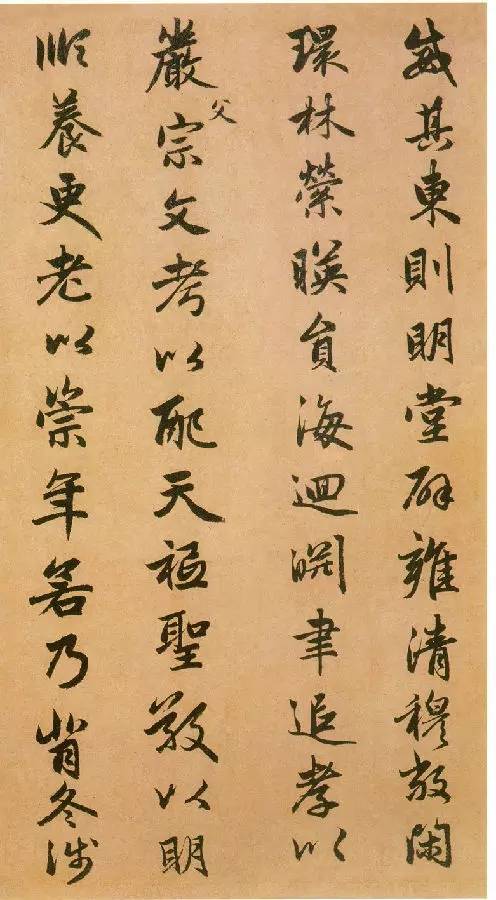 威其東則明堂辟雍清穆敞閑
環林縈暎員海迴淵聿追孝以
嚴父宗文考以配天祗聖敬以明
順養更老以崇年若乃背冬涉